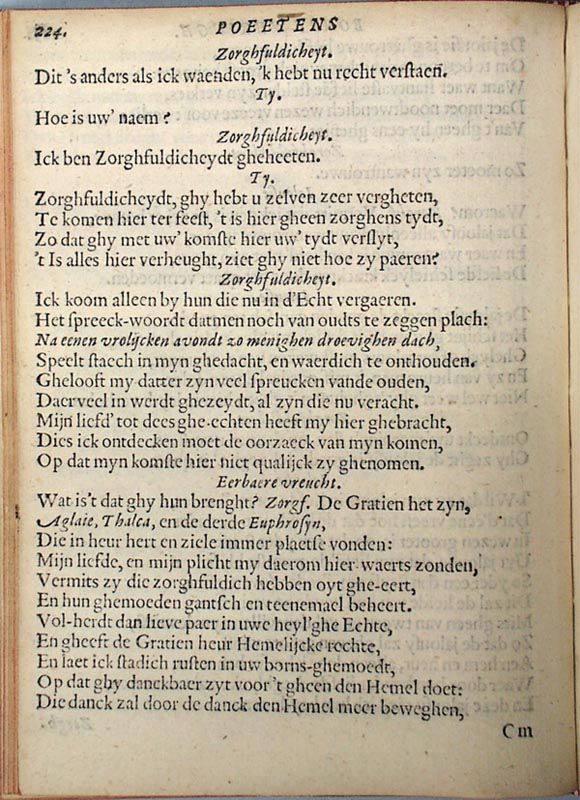 224. POEETENS
Zorghfuldicheyt.
Dit 's anders als ick waenden, 'k hebt nu recht verstaen.
Ty.
Hoe is uw' naem?
Zorghfuldicheyt.
Ick ben Zorghfuldicheydt gheheeten.
Ty.
Zorghfuldicheydt, ghy hebt u zelven zeer vergheten,
Te komen hier ter feest, 't is hier gheen zorghens tydt,
Zo dat ghy met uw' komste hier uw' tydt verslyt,
't Is alles hier verheught, ziet ghy niet hoe zy paeren?
Zorghfuldicheyt.
Ick koom alleen by hun die nu in d'Echt vergaeren.
Het spreeck-woordt datmen noch van oudts te zeggen plach:
Na eenen vrolijcken avondt zo menighen droevighen dach,
Speelt staech in myn ghedacht, en waerdich te onthouden.
Ghelooft my datter zyn veel spreucken vande ouden,
Daer veel in werdt ghezeydt, al zyn die nu veracht.
Mijn liefd' tot dees ghe-echten heeft my hier ghebracht,
Dies ick ontdecken moet de oorzaeck van myn komen,
Op dat myn komste hier niet qualijck zy ghenomen.
Eerbaere vreucht.
Wat is't dat ghy hun brenght? Zorgf. De Gratien het zyn,
Aglaie, Thalea, en de derde Euphrosyn,
Die in heur hert en ziele immer plaetse vonden:
Mijn liefde, en mijn plicht my daerom hier-waerts zonden,
Vermits zy die zorghfuldich hebben oyt ghe-eert,
En hun ghemoeden gantsch en teenemael beheert.
Vol-herdt dan lieve paer in uwe heyl'ghe Echte,
En gheeft de Gratien heur Hemelijcke rechte,
En laet ick stadich rusten in uw borns-ghemoedt,
Op dat ghy danckbaer zyt voor 't gheen den Hemel doet:
Die danck zal door de danck den Hemel meer beweghen,
Om